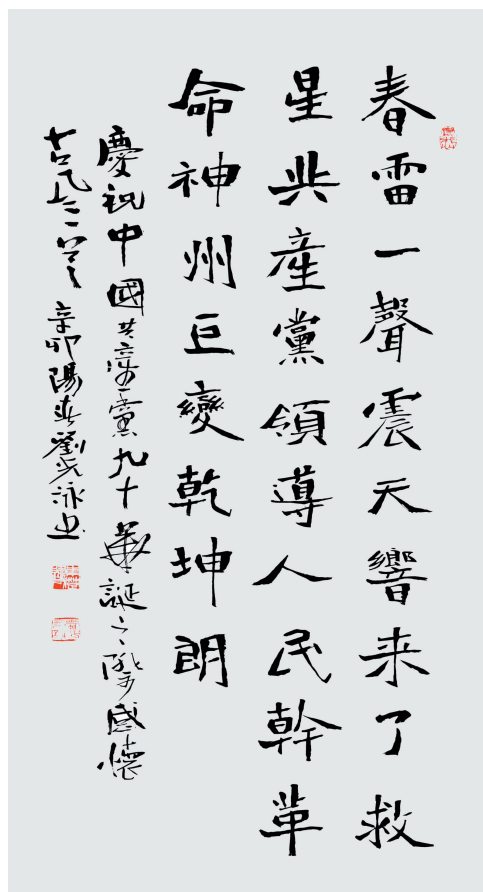 春雷一聲震天響来了救
星共產黨領導人民幹革
命神州巨變乾坤朗
慶祝中國共產黨九十華誕之際感懷
辛卯陽春劉光泳书